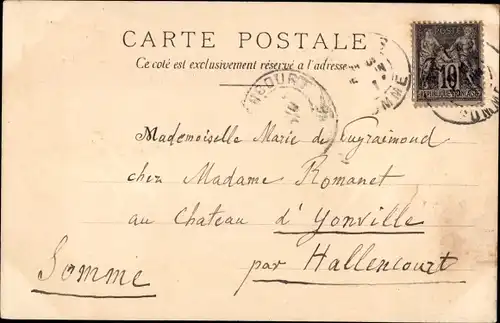 CARTE POSTALE
Ce côté est exclusivement réservé à l'adresse
10
NCOURT
SOMME
Mademoiselle Marie de Puyraimond
chez Madame Romanet
au Chateau d'Yonville
Somme par Hallencourt